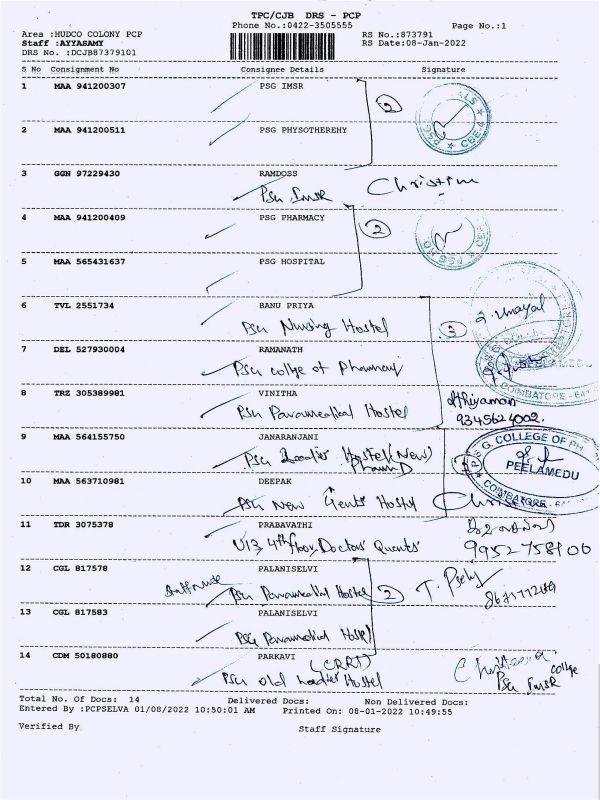 TPC/CJB DRS - PCP
Phone No.:0422-3505555 Page No.:1
Area :HUDCO COLONY PCP RS No.:873791
Staff :AYYASAMY RS Date:08-Jan-2022
DRS No. :DCJB87379101
S No Consignment No Consignee Details Signature
1 MAA 941200307 PSG IMSR
2
2 MAA 941200511 PSG PHYSOTHEREHY
3 GGN 97229430 RAMDOSS
PSG IMSR
4 MAA 941200409 PSG PHARMACY
2
5 MAA 565431637 PSG HOSPITAL
6 TVL 2551734 BANU PRIYA
PSG Nursing Hostel 3
7 DEL 527930004 RAMANATH
PSG college of Pharmacy
8 TRZ 305389981 VINITHA
PSG Paramedical Hostel
9345624002
9 MAA 564155750 JANARANJANI
PSG Ladies Hostel (New)
Pharm D
PSG COLLEGE OF PH
PEELAMEDU
COIMBATORE
10 MAA 563710981 DEEPAK
PSG New Gents Hostel
11 TDR 3075378 PRABAVATHI
U13, 4th floor, Doctors Quarts
9952758100
12 CGL 817578 PALANISELVI
Staff nurse PSG Paramedical Hostel 2
13 CGL 817583 PALANISELVI
PSG Paramedical Hostel
14 CDM 50180880 PARKAVI
(CRRI)
PSG old Ladies Hostel
college
PSG IMSR
Total No. Of Docs: 14 Delivered Docs: Non Delivered Docs:
Entered By :PCPSELVA 01/08/2022 10:50:01 AM Printed On: 08-01-2022 10:49:55
Verified By Staff Signature